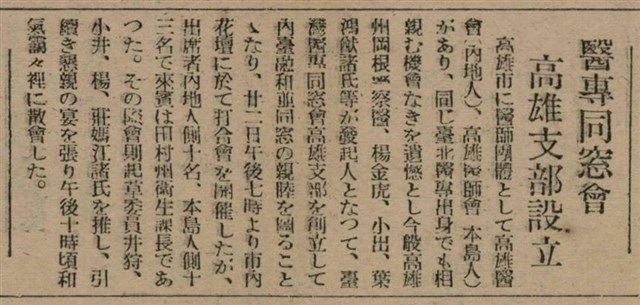 醫專同窓會
高雄支部設立
高雄市に醫師團體として高雄醫
會（內地人）、高雄醫師會（本島人）
があり、同じ臺北醫專出身でも相
親む機會なきを遺憾とし今般高雄
州岡根警察醫、楊金虎、小出、葉
鴻猷諸氏等が發起人となつて、臺
灣醫專同窓會高雄支部を創立して
內臺融和並同窓の親睦を圖ること
となり、廿二日午後七時より市內
花壇に於て打合會を開催したが、
出席者內地人側十名、本島人側十
三名で來賓は田村州衛生課長であ
つた。その際會則起草委員井狩、
小井、楊、莊媽江諸氏を推し、引
續き懇親の宴を張り午後十時頃和
氣靄々裡に散會した。